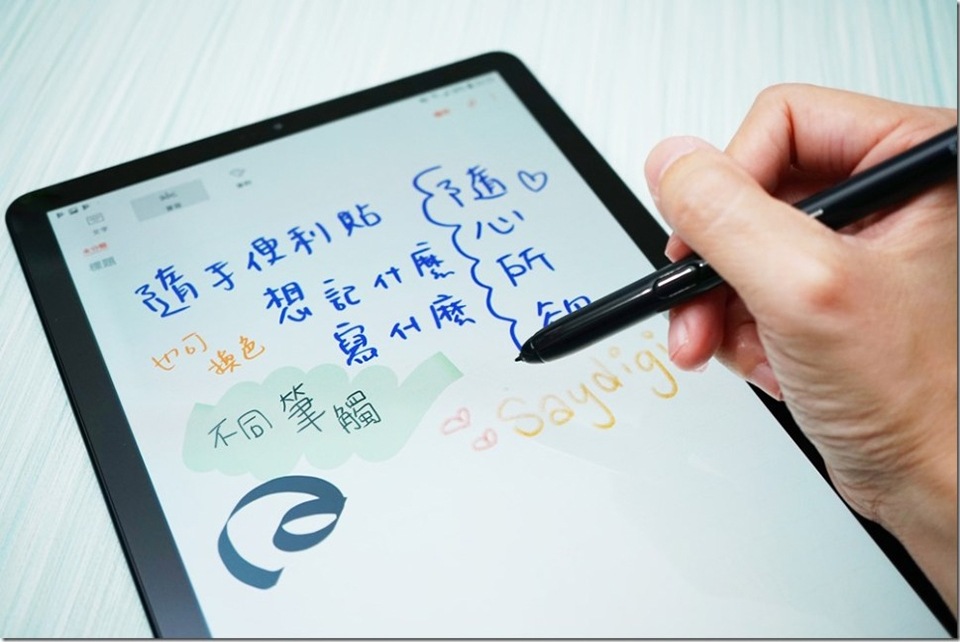 隨手便利貼
想記什麼
寫什麼
隨♡
心
所
也可
換色
不同筆觸
Saydigi